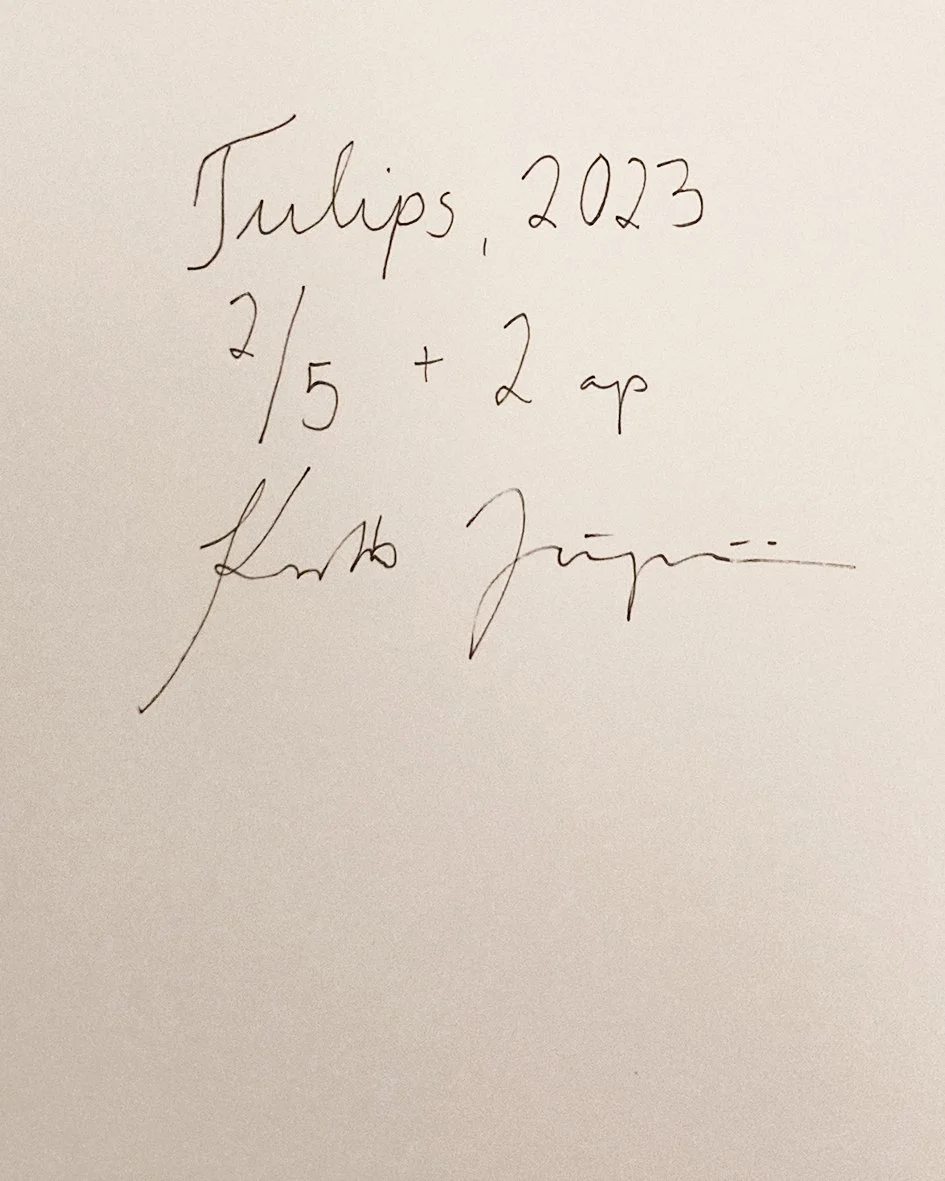 Tulips, 2023
2/5 + 2 ap